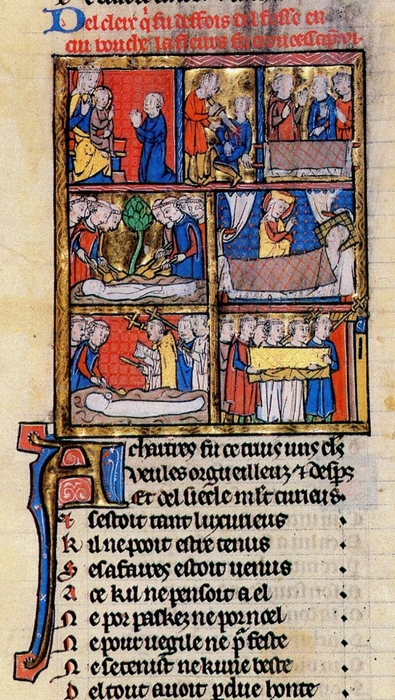 Del clerc q̃ fu deffois del fosse en
cui bouche la fleurs fu trouee cap. vi.
A chartres fu ce truis uns cls̃
Veules orgueilleuz ⁊ desps̃
Et del siecle mlt curieus.
sestoit tant luxurieus
K il ne pooit estre tenus
S es afaires estoit uenus
A ce kil ne pensoit a el
N e por paskez ne por noel
N e pour uegile ne p̃ feste
N e se tenist ne kune beste
D el tout auoit pdue honte